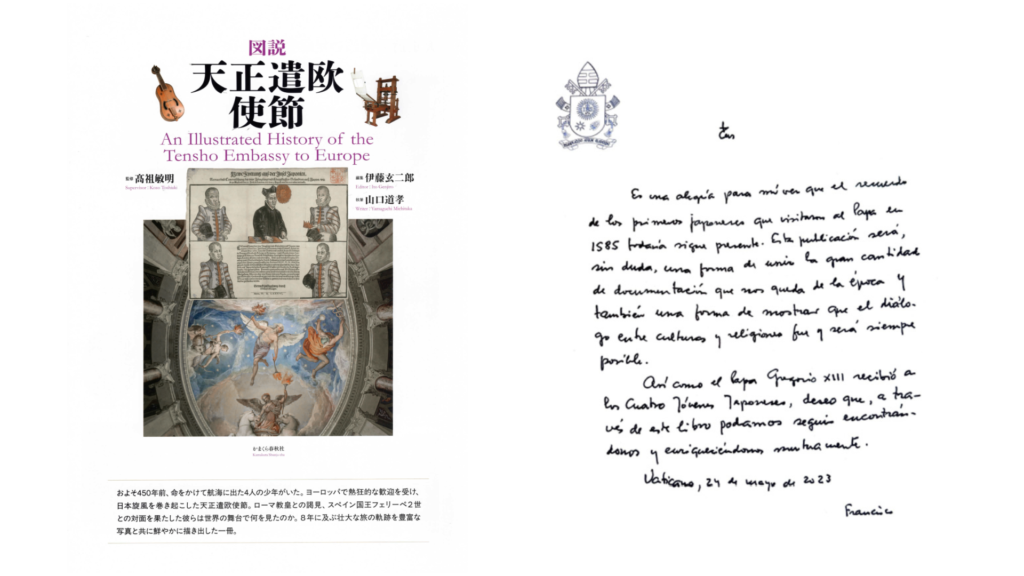 図説
天正遣欧
使節
An Illustrated History of the
Tensho Embassy to Europe
監修 高祖敏明
編集 伊藤玄二郎
執筆 山口道孝
かまくら春秋社
およそ450年前、命をかけて航海に出た4人の少年がいた。ヨーロッパで熱狂的な歓迎を受け、
日本旋風を巻き起こした天正遣欧使節。ローマ教皇との謁見、スペイン国王フェリーペ2世
との対面を果たした彼らは世界の舞台で何を見たのか。8年に及ぶ壮大な旅の軌跡を豊富な
写真と共に鮮やかに描き出した一冊。
Es una alegría para mí ver que el recuerdo
de los primeros japoneses que visitaron al Papa en
1585 todavía sigue presente. Esta publicación será,
sin duda, una forma de unir la gran cantidad
de documentación que nos queda de la época y
también una forma de mostrar que el diálo-
go entre culturas y religiones fue y será siempre
posible.
Así como el Papa Gregorio XIII recibió a
los Cuatro Jóvenes Japoneses, deseo que, a tra-
vés de este libro podamos seguir encontrán-
donos y enriqueciéndonos mutuamente.
Vaticano, 24 de mayo de 2023
Francisco